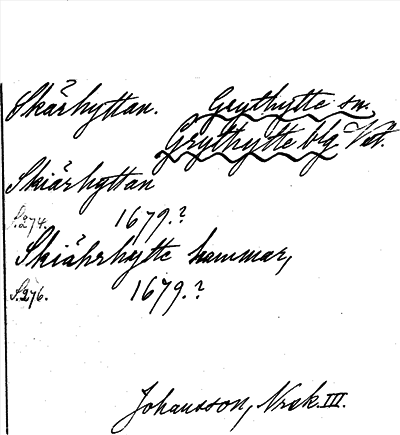 Skärhyttan. Grythytte sn.
Grythytte blg Vstm.
Skiärhyttan
S. 274. 1679.?
Skiährhytte hammar,
S. 276. 1679.?
Johansson, Nrck. III.